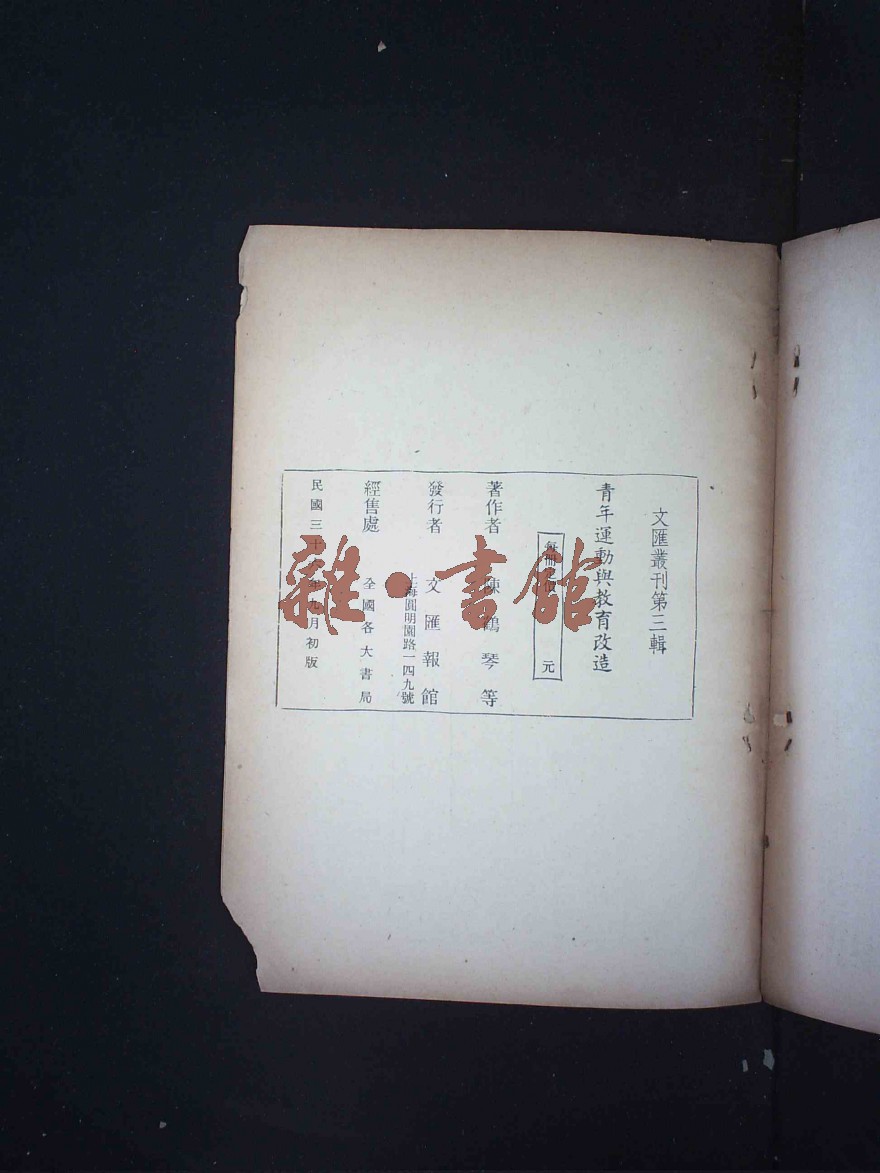 文匯叢刊第三輯
青年運動與教育改造
每冊 元
著作者 陳鶴琴等
發行者 文匯報館
上海圓明園路一四九號
經售處 全國各大書局
民國三十六年九月初版
雜·書館